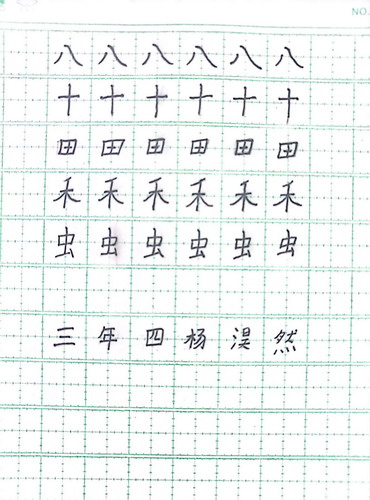 NO.
八八八八八八
十十十十十十
田田田田田田
禾禾禾禾禾禾
虫虫虫虫虫虫
三年四杨淏然